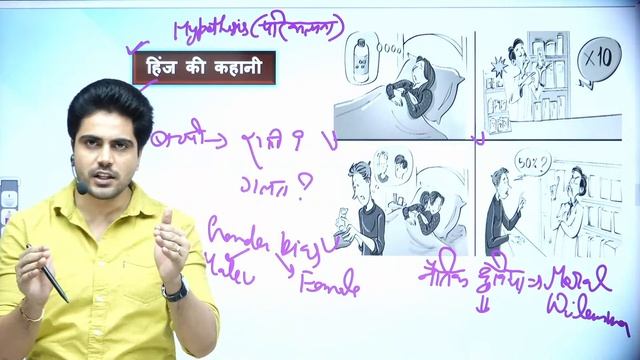 Hypothesis (परिकल्पना)
हिंज की कहानी
X10
सही ?
50%?
गलत ?
Gender bias
Male Female
नैतिक दुविधा → Moral